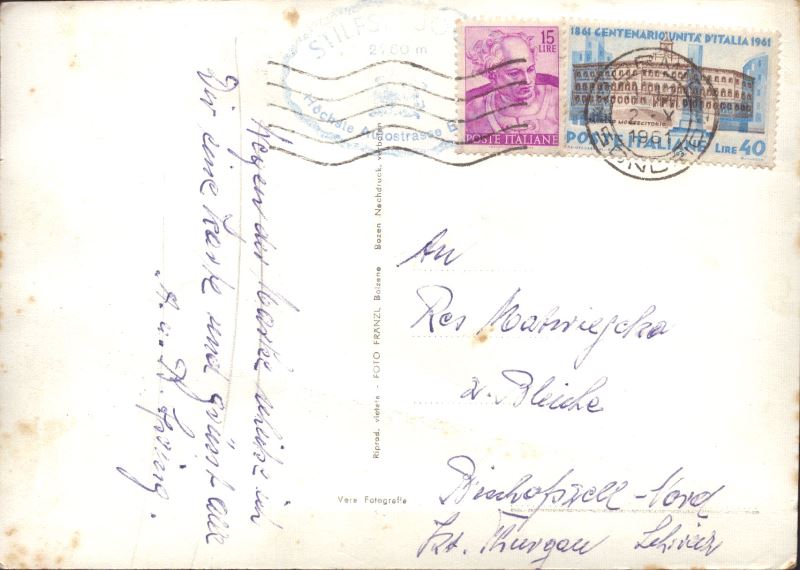 STILFS
2760 m
Höchste Autostrasse E
15
LIRE
POSTE ITALIANE
1861 CENTENARIO UNITÀ D'ITALIA 1961
MONTECITORIO
POSTE ITALIANE LIRE 40
1961
Wegen der Marke schicke ich
Dir eine Karte und grüsst alle
Riprod. vietata - FOTO FRANZL Bolzano Bozen Nachdruck verboten
Vera Fotografia
An
z. Bleiche
Bischofszell-Nord
Kt. Thurgau Schweiz